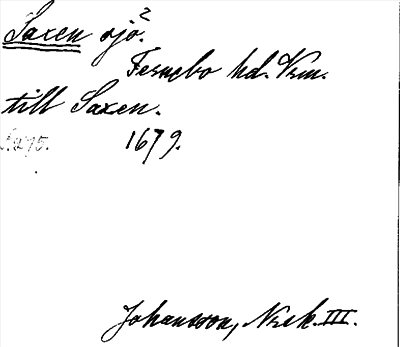 Saxen sjö.²
Fernebo hd. Vrm.
till Saxen.
1679.
Johansson, Nrsk. III.